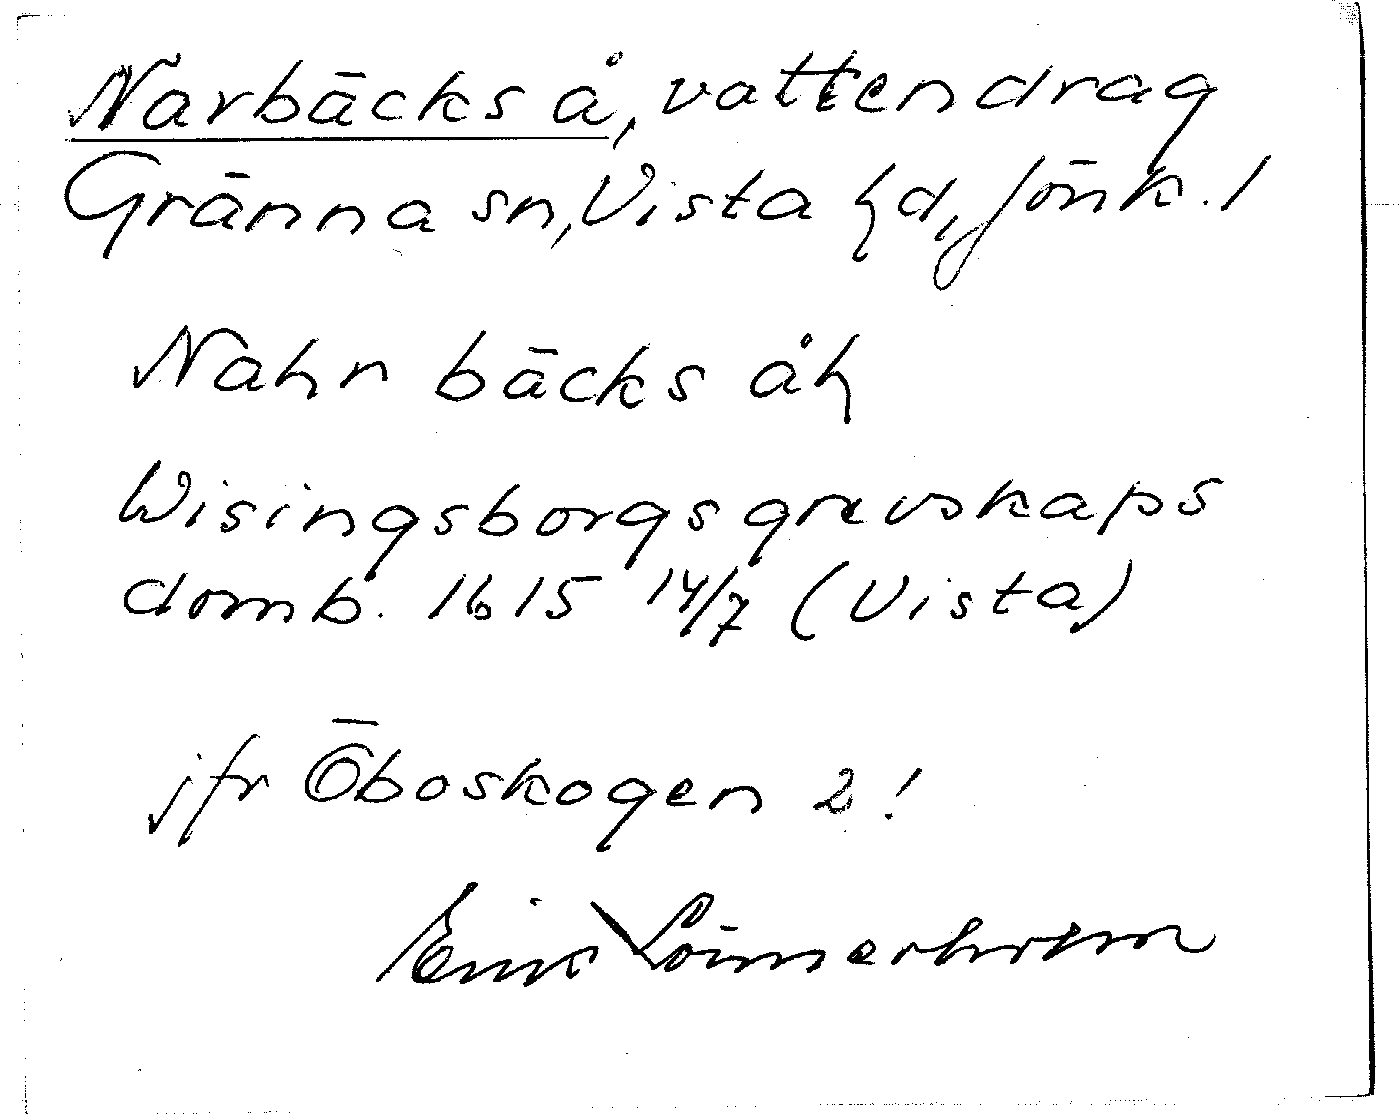 Narbäcks å, vattendrag
Gränna sn, Vista hd, Jönk. l
Nahr bäcks åh
Wisingsborgs grevskaps
domb. 1615 14/7 (Vista)
jfr Öboskogen 2!
Erik Lönnerholm